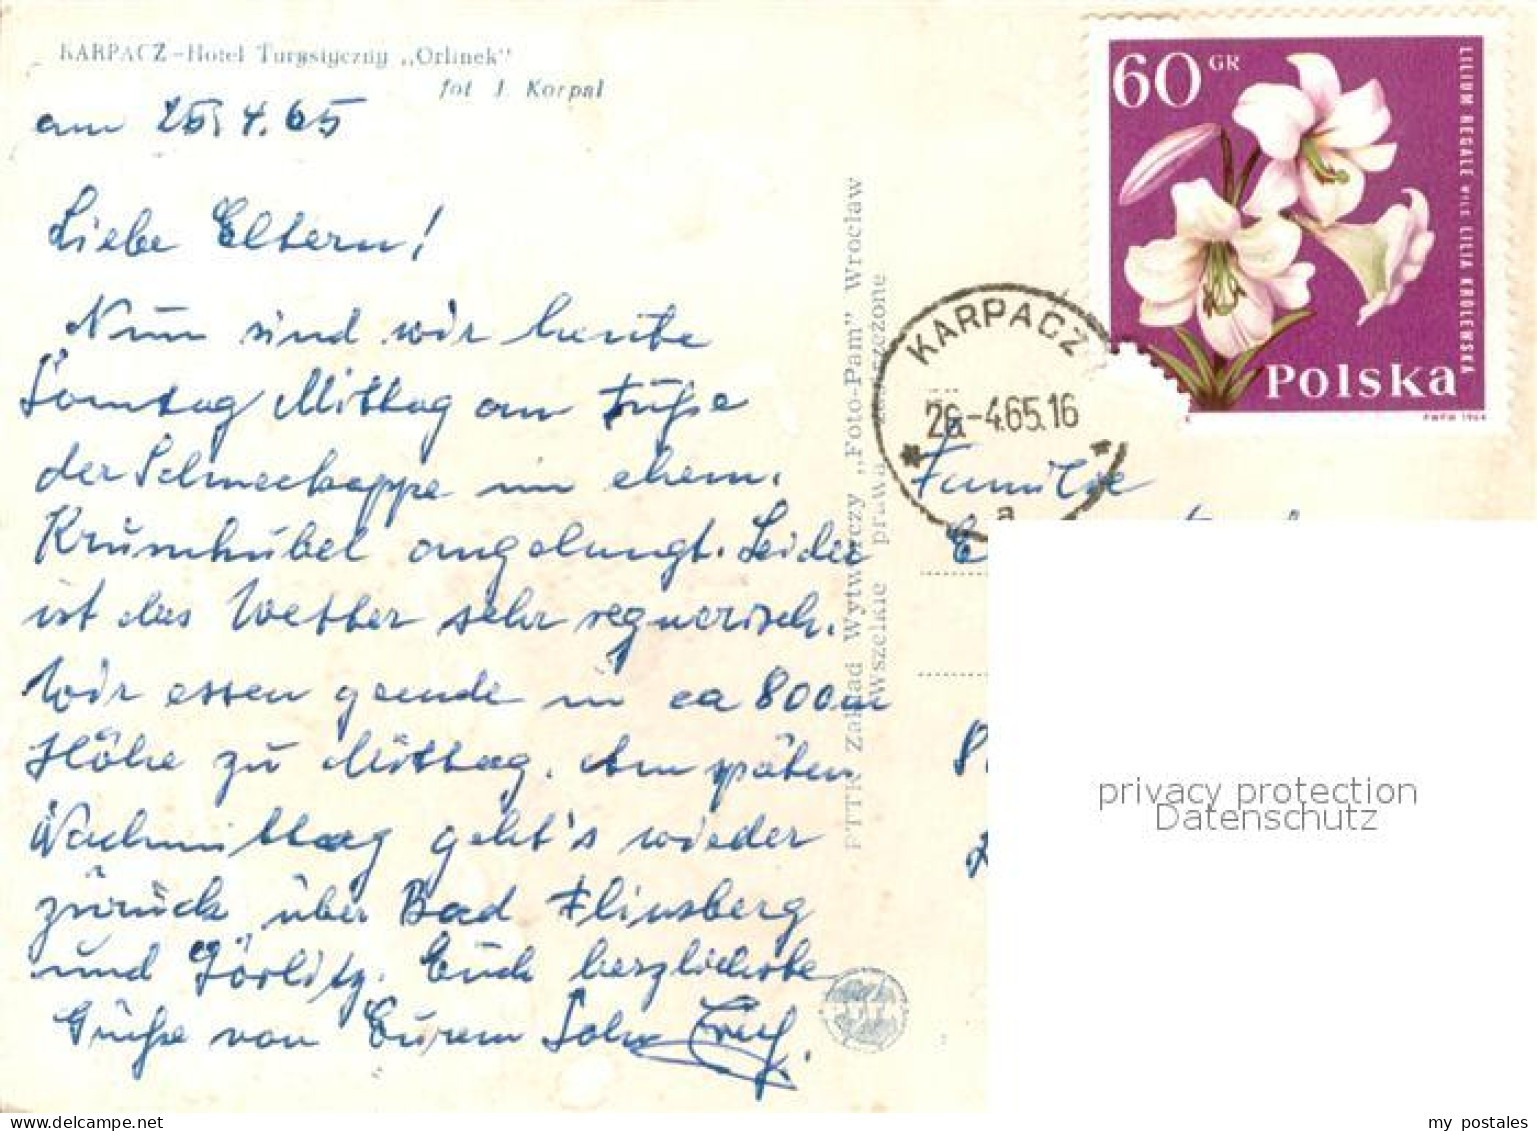 KARPACZ-Hotel Turystyczny „Orlinek"
fot J. Korpal
am 25.4.65
Liebe Eltern!
Nun sind wir heute
Sonntag Mittag am Fuße
der Schneekoppe im ehem.
Krumhübel angelangt. Leider
ist das Wetter sehr regnerisch.
Wir essen gerade in ca 800m
Höhe zu Mittag. Am späten
Nachmittag geht's wieder
zurück über Bad Flinsberg
und Görlitz. Euch herzlichste
Grüße von Eurem Sohn
PTTK Zakład Wytwórczy „Foto-Pam" Wrocław
Wszelkie prawa zastrzeżone
60 GR
LILIUM REGALE WILS LILIA KRÓLEWSKA
Polska
PWPW 1964
KARPACZ
26-4.65.16
a
Familie
privacy protection
Datenschutz
my postales